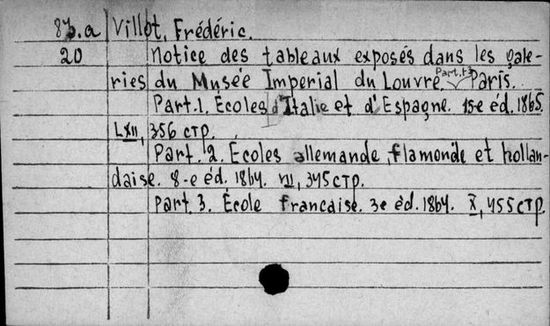 83.a Villot, Frédéric.
20 Notice des tableaux exposés dans les gale-
ries du Musée Imperial du Louvre. Part. 1-3 Paris.
Part. 1. Écoles d'Italie et d'Espagne. 15e éd. 1865.
LXII, 356 стр.
Part. 2. Écoles allemande, flamonde et hollan-
daise. 8-e éd. 1864. VII, 345 стр.
Part. 3. École francaise. 3e éd. 1864. X, 455 стр.